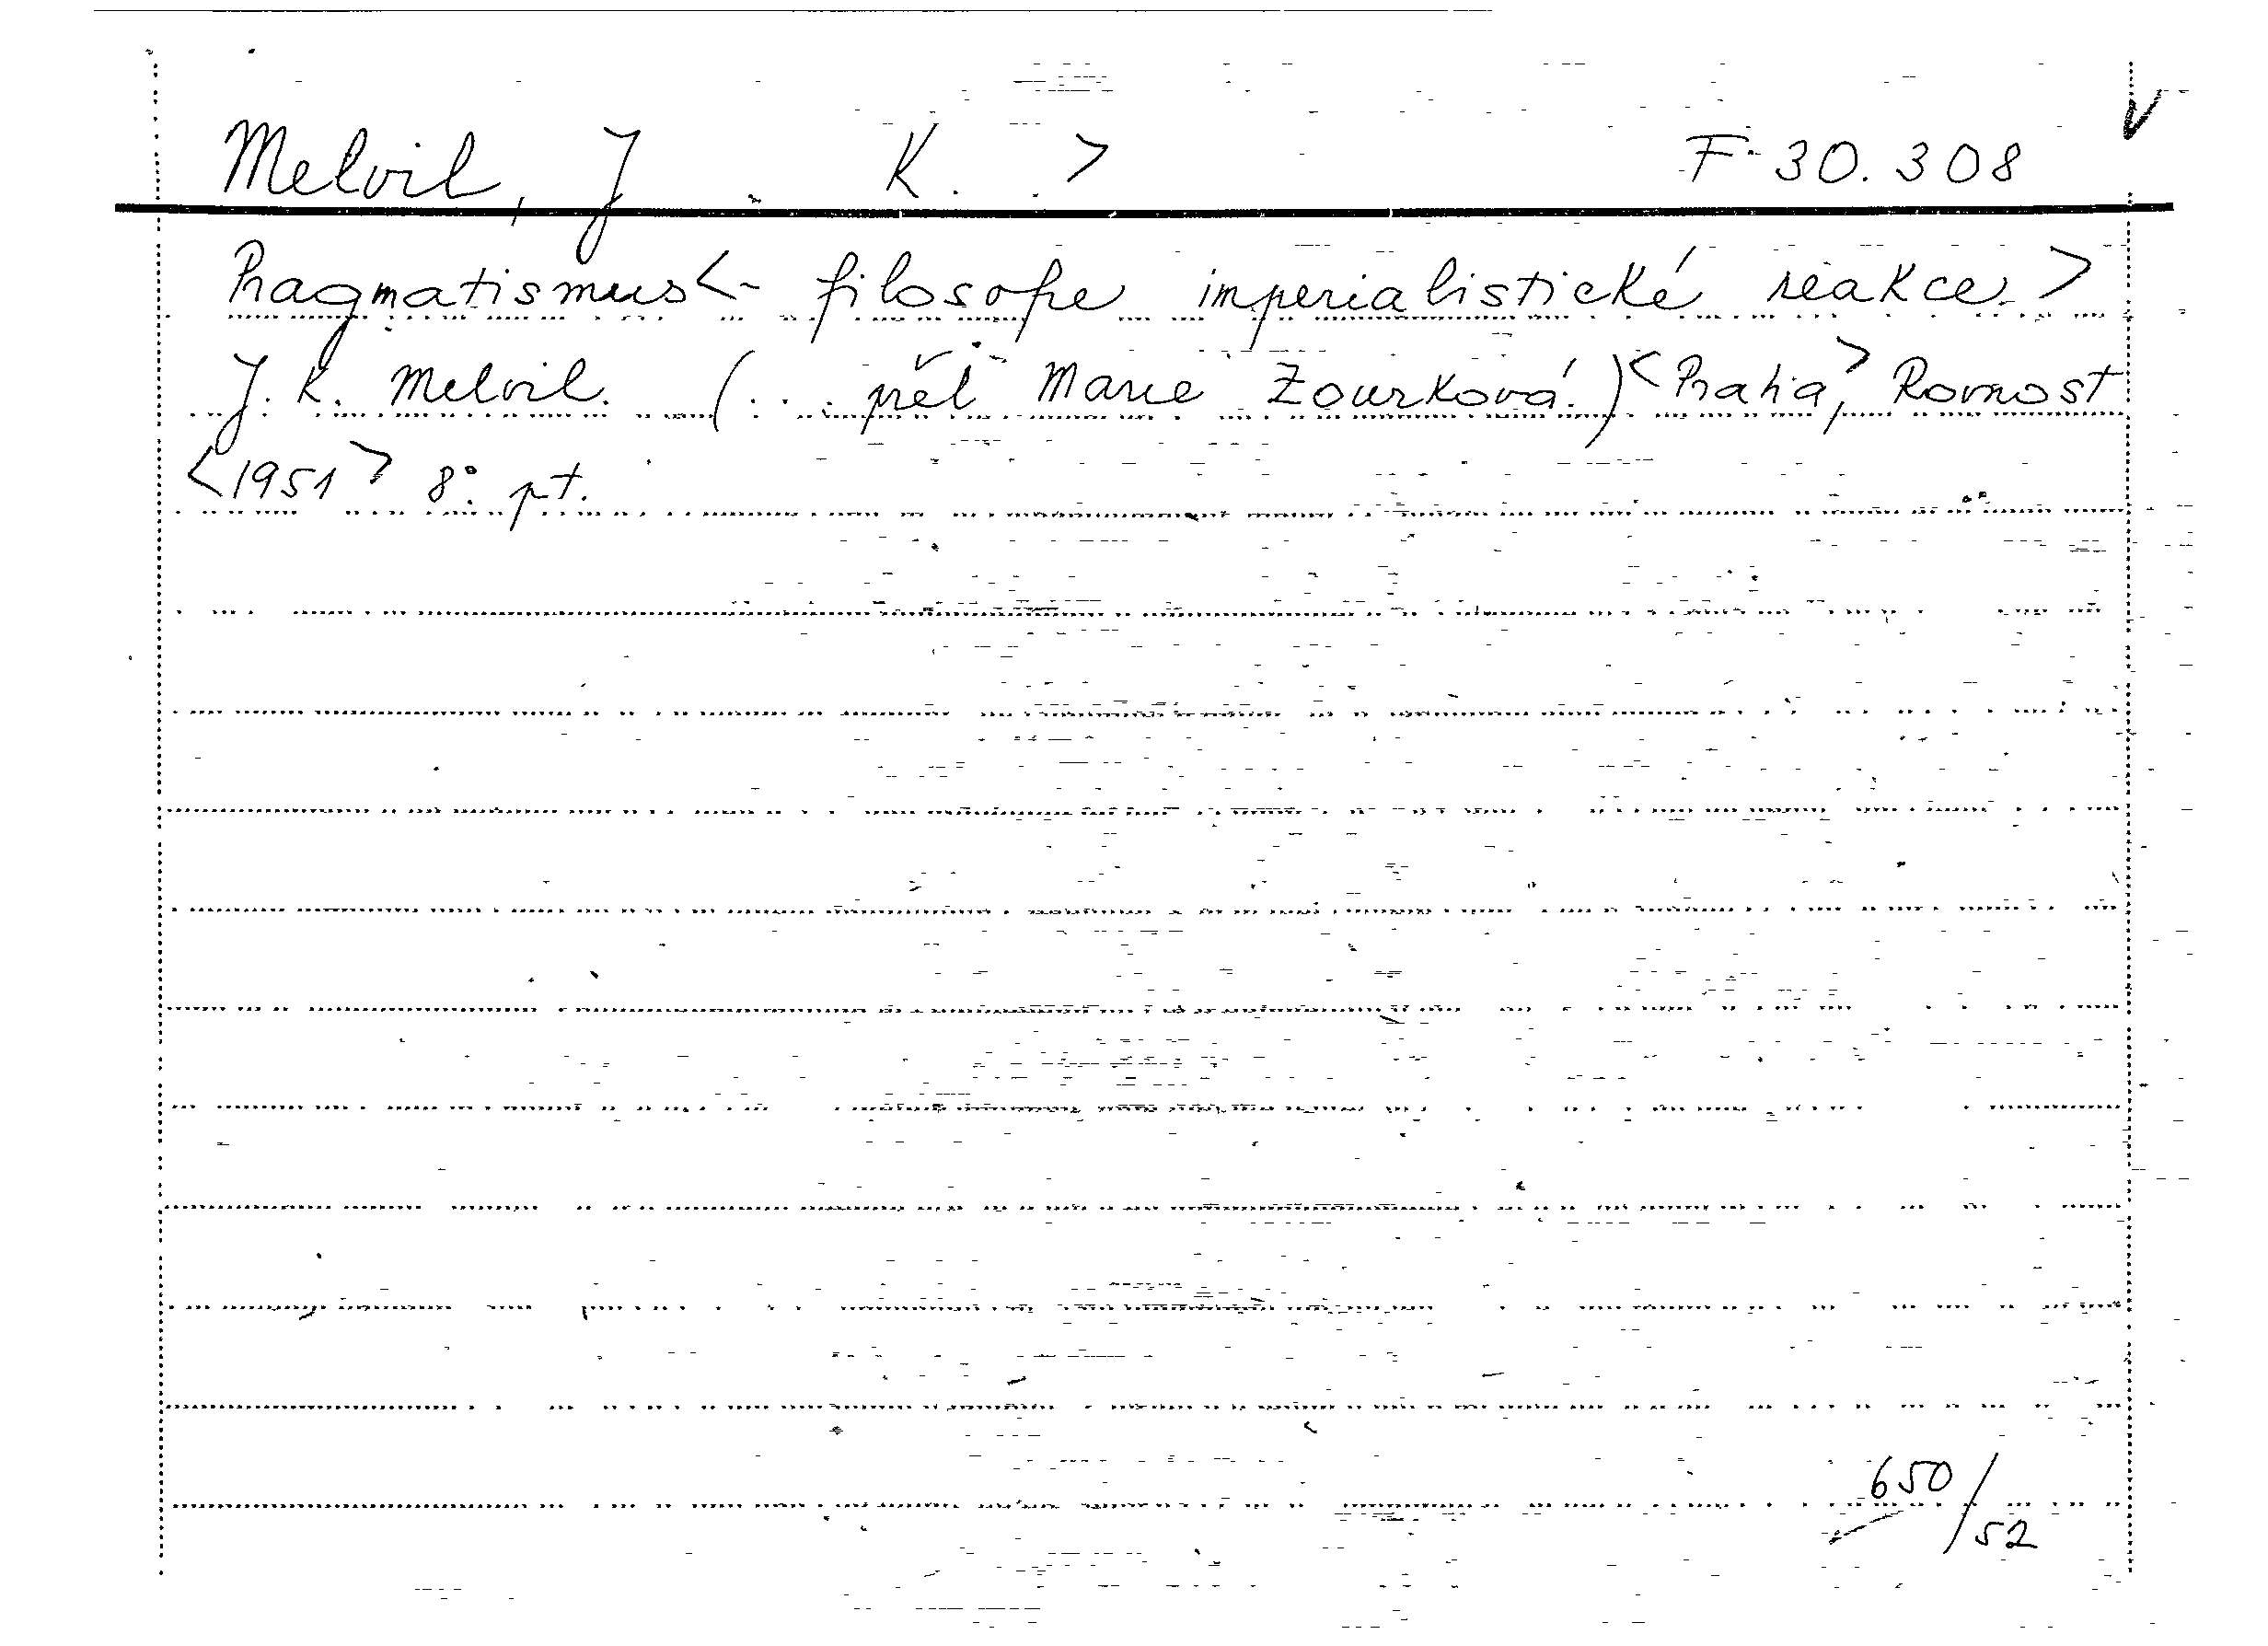 Melvil, J . K. . > F 30.308
Pragmatismus <- filosofie imperialistické reakce. >
J. K. Melvil. (... přel Marie Zourková.) <Praha,> Rovnost
<1951> 8°. pt.
650/52